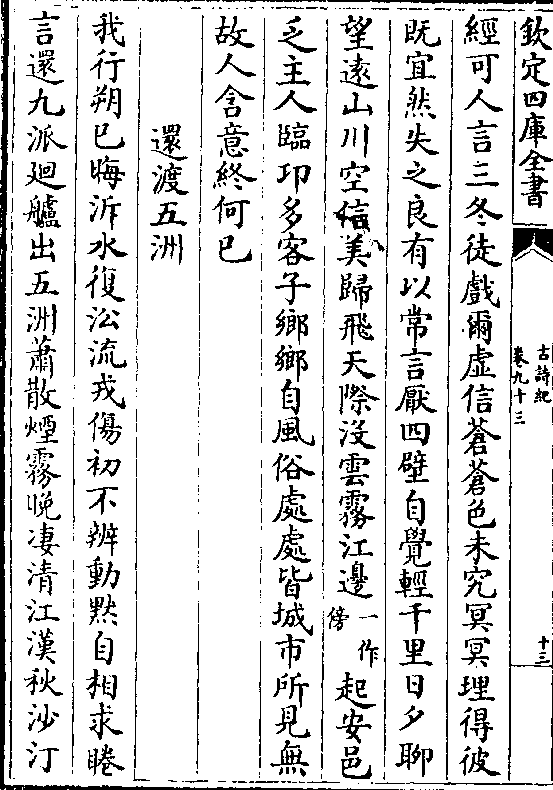 欽定四庫全書
古詩紀
卷九十三
十三
經可人言三冬徒戲爾虚信蒼蒼色未究冥冥理得彼
既宜然失之良有以常言厭四壁自覺輕千里日夕聊
望遠山川空信美歸飛天際没雲霧江邊一作傍起安邑
乏主人臨卭多客子鄉鄉自風俗處處皆城市所見無
故人含意終何已
還渡五洲
我行朔已晦泝水復㳂流戎傷初不辨動黙自相求睠
言還九派廻艫出五洲蕭散煙霧晚凄清江漢秋沙汀